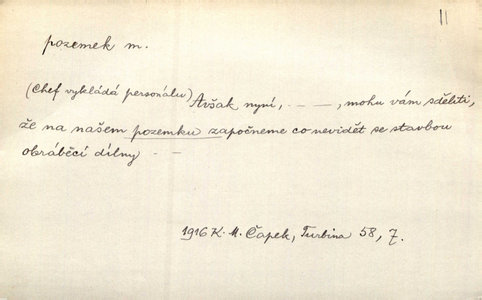 11
pozemek m.
(Chef vykládá personálu) Avšak nyní, – – –, mohu vám sděliti,
že na našem pozemku započneme co nevidět se stavbou
obráběcí dílny – –
1916 K. M. Čapek, Turbina 58, 7.